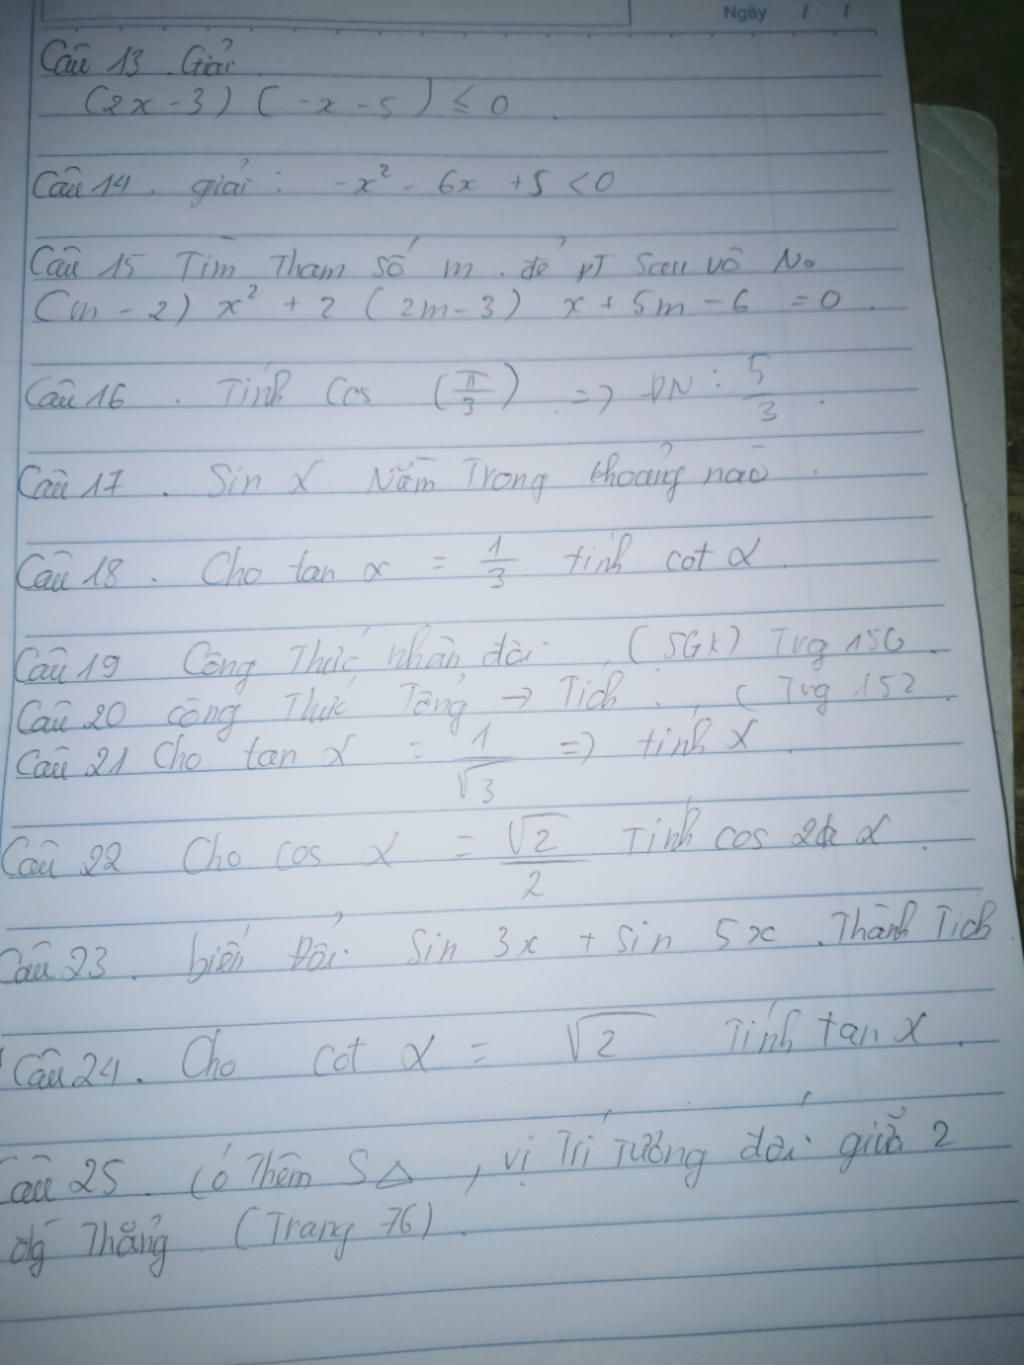 Ngày / /
Câu 13. Giải
(2x - 3) (-x - 5) ≤ 0.
Câu 14. giải: -x² - 6x + 5 < 0
Câu 15 Tìm Tham số m. để pT Sau vô No
(m - 2) x² + 2 (2m - 3) x + 5m - 6 = 0.
Câu 16. Tính Cos (π/3) => ĐN: 5/3.
Câu 17. Sin α Nằm Trong khoảng nào.
Câu 18. Cho tan α = 1/3 tính cot α.
Câu 19 Công Thức nhân đôi (SGK) Trg 150.
Câu 20 công Thức Tổng → Tích., (Trg 152.
Câu 21 Cho tan α = 1/√3 => tính α.
Câu 22 Cho cos α = √2/2 Tính cos 2 α.
Câu 23. biến Đổi Sin 3x + Sin 5x. Thành Tích.
Câu 24. Cho cot α = √2 Tính tan α.
Câu 25. Có Thêm S△, vị Trí Tương đối giữa 2
đg Thẳng (Trang 76).